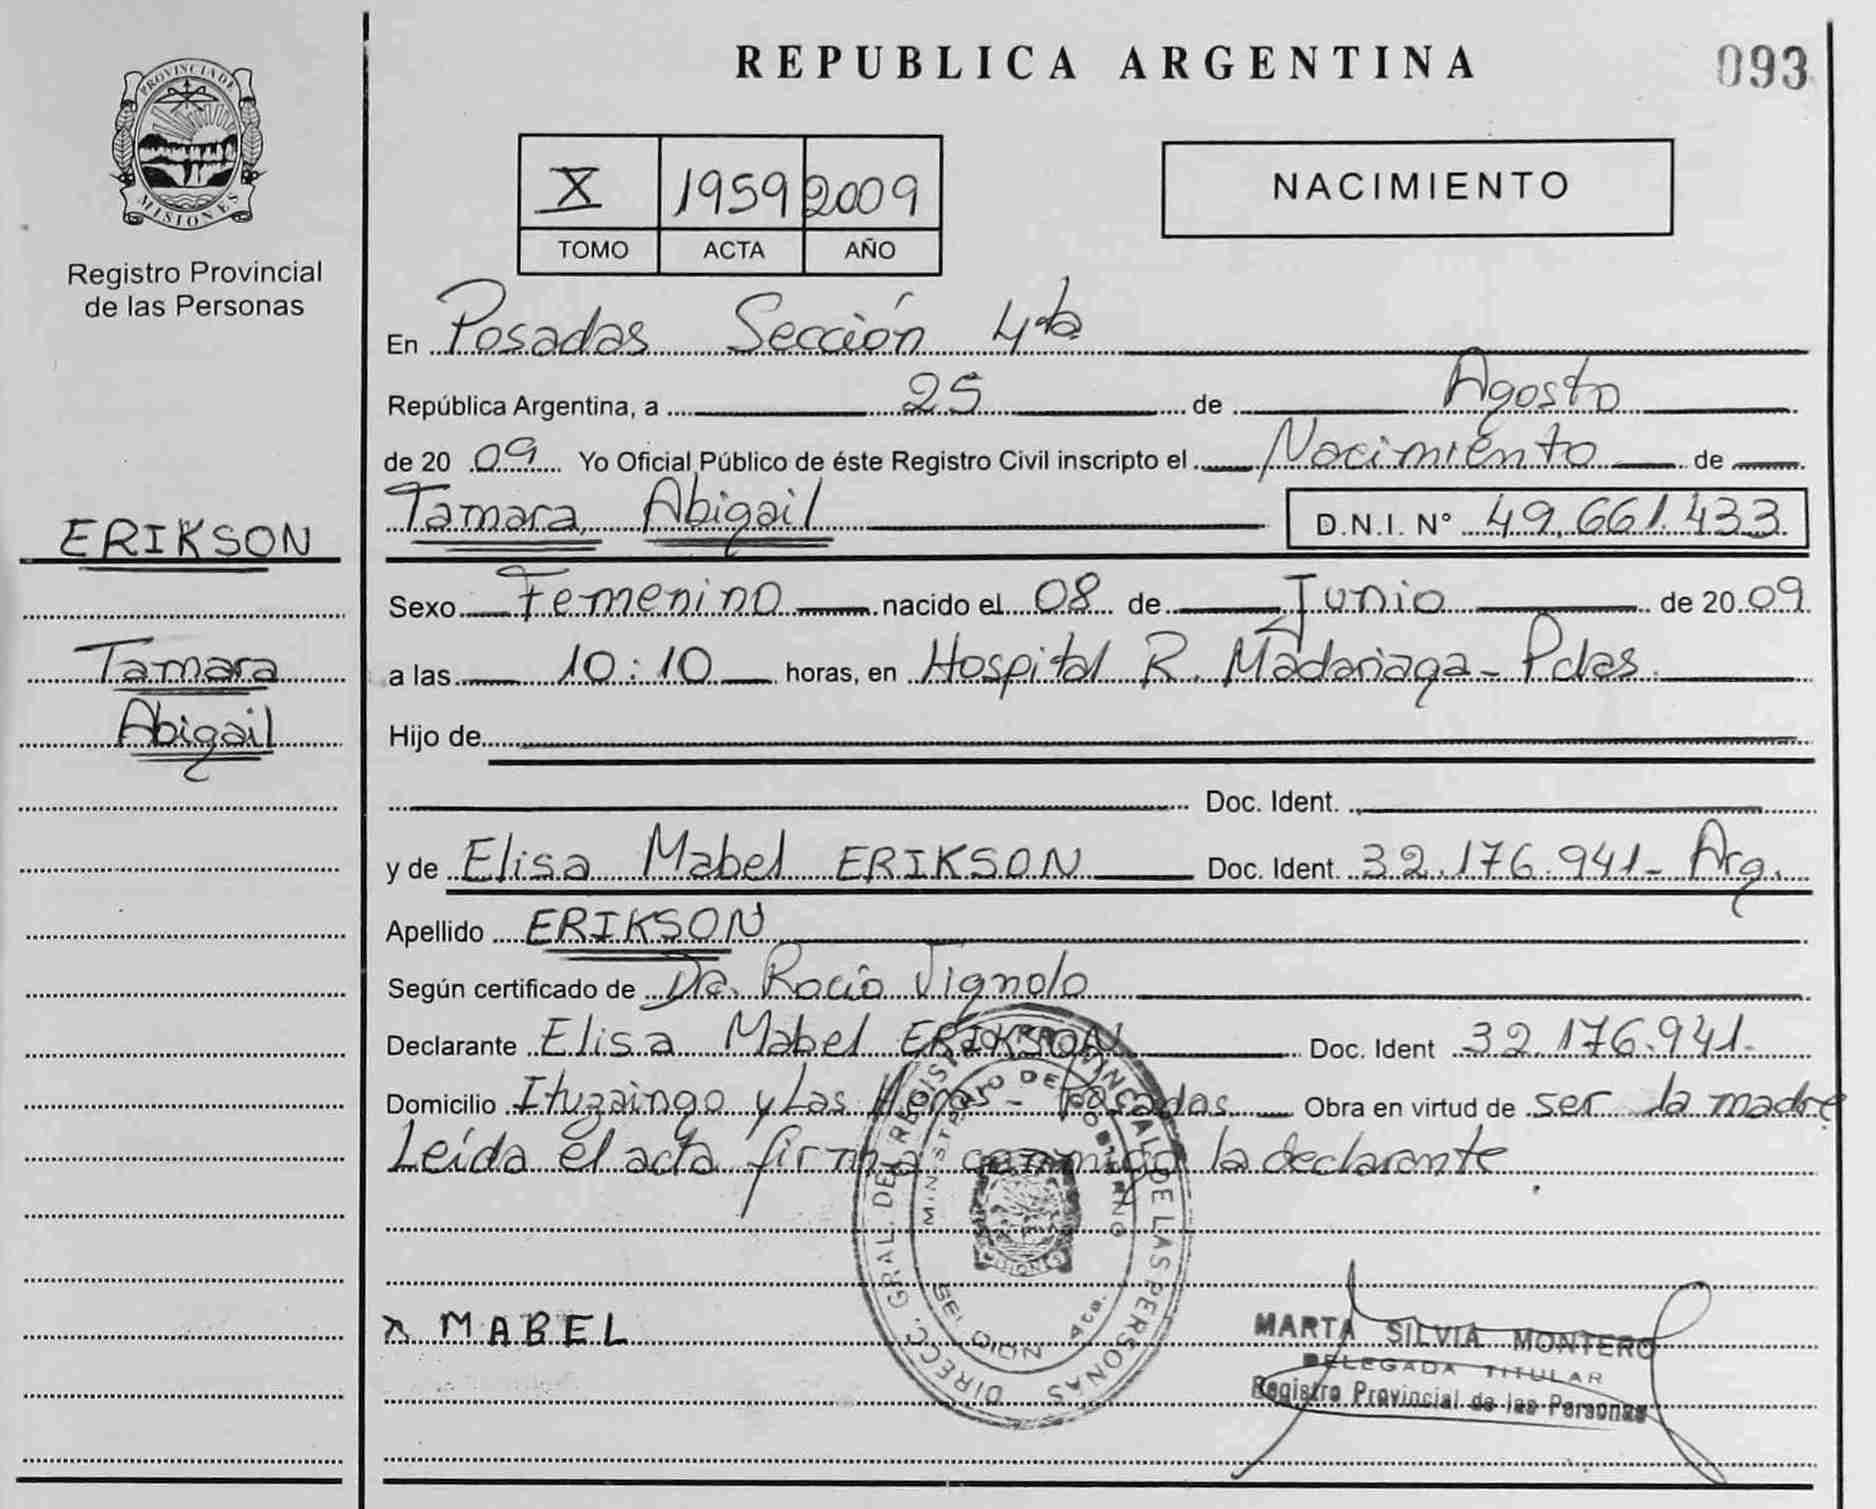 PROVINCIA DE
MISIONES
Registro Provincial
de las Personas
ERIKSON
Tamara
Abigail
REPUBLICA ARGENTINA
093
X 1959 2009
TOMO ACTA AÑO
NACIMIENTO
En Posadas Sección 4ta
República Argentina, a 25 de Agosto
de 20 09 Yo Oficial Público de éste Registro Civil inscripto el Nacimiento de
Tamara Abigail D.N.I. N° 49.661.433
Sexo Femenino nacido el 08 de Junio de 20 09
a las 10:10 horas, en Hospital R. Madariaga - Pdas.
Hijo de
Doc. Ident.
y de Elisa Mabel ERIKSON Doc. Ident. 32.176.941- Arg.
Apellido ERIKSON
Según certificado de Dra. Rocío Vignolo
Declarante Elisa Mabel ERIKSON Doc. Ident 32.176.941-
Domicilio Ituzaingo y Las Heras - Posadas Obra en virtud de ser la madre
Leída el acta firma conmigo la declarante
DIRECC. GRAL. DEL REGISTRO PROVINCIAL DE LAS PERSONAS
MINISTERIO DE GOBIERNO
SECCION 4ta.
MABEL
MARTA SILVIA MONTERO
DELEGADA TITULAR
Registro Provincial de las Personas